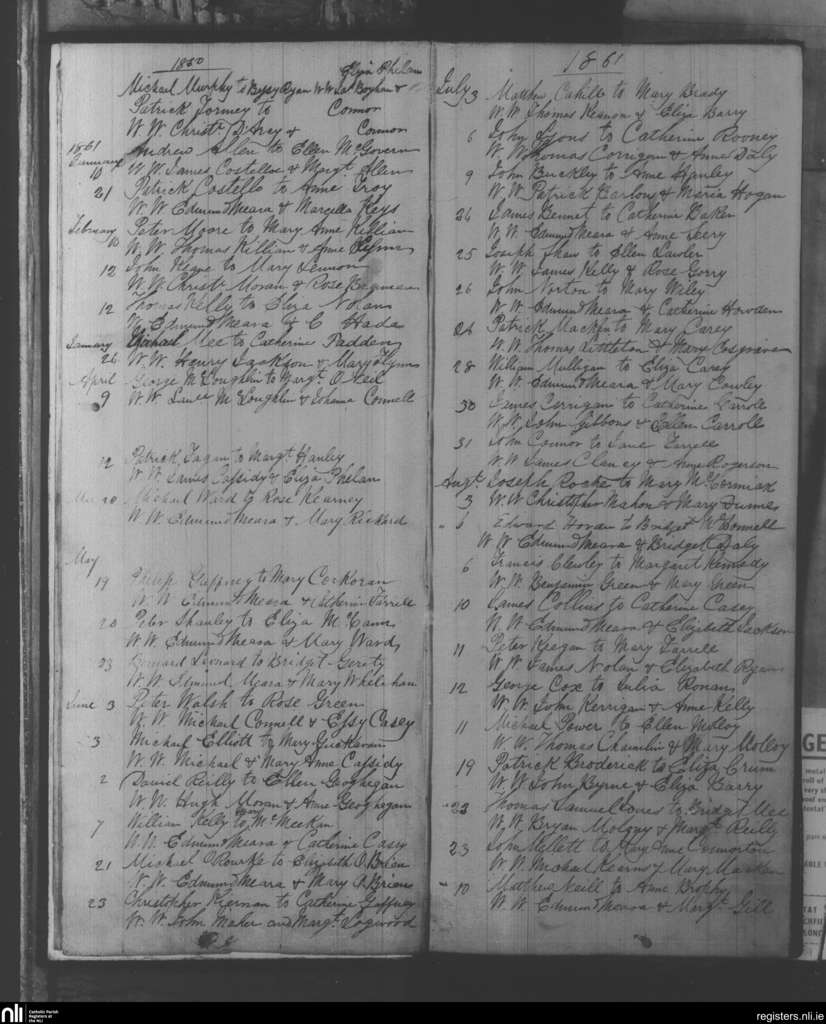 1850
Eliza Phelan
Michael Murphy to Betsy Ryan W W &
Patrick to Connor
W W Christr D'Arcy & Connor
1861
January
Andrew Allen to Ellen McGovern
10 W W James Costelloe & Margt Allen
21 Patrick Costello to Anne Troy
W W Edmund Meara & Marcella Keys
February Peter Moore to Mary Anne Killian
10 W W Thomas Killian & Anne
12 John Keane to Mary Lennon
W W Christr Moran & Rose
12 Thomas Kelly to Eliza Nolan
W Edmund Meara & C Hada
January Michael Mee to Catherine Fadden
26 W W Henry Jackson & Mary Flynn
April George McLoughlin to Margt
9 W W McLoughlin & Johanna Connell
12 Patrick Fagan to Margt Hanley
W W James Cassidy & Eliza Phelan
20 Michael Ward to Rose Kearney
W W Edmund Meara & Mary Rickard
May
19 Philip Gaffney to Mary Corkoran
W W Edmund Meara & Catherine Farrell
20 Peter Shanley to Eliza McCann
W W Edmund Meara & Mary Ward
23 Bernard Leonard to Bridget Geraty
W W Edmund Meara & Mary Whelehan
June 3 Peter Walsh to Rose Green
W W Michael Connell & Essy Casey
3 Michael Elliott to Mary
W W Michael & Mary Anne Cassidy
2 David Reilly to Ellen Geoghegan
W W Hugh Moran & Anne Geoghegan
7 William Kelly to McMeekan
W W Edmund Meara & Catherine Casey
21 Michael O'Rourke to Elizabeth O'Brien
W W Edmund Meara & Mary O'Brien
23 Christopher Kiernan to Catherine Gaffney
W W John Maher and Margt Logwood
1861
July 3 Matthew Cahill to Mary Brady
W W Thomas Keenan & Eliza Barry
6 John Lyons to Catherine Rooney
W W Thomas Corrigan & Anne Daly
9 John Buckley to Anne Hanley
W W Patrick Barlow & Maria Hogan
26 James Bennet to Catherine Baker
W W Edmund Meara & Anne Seery
25 Joseph Shaw to Ellen Lawler
W W James Kelly & Rose Gorry
26 John Norton to Mary Wiley
W W Edmund Meara & Catherine Howden
26 Patrick Macken to Mary Carey
W W Thomas Littleton & Mary Cosgriven
28 William Mulligan to Eliza Casey
W W Edmund Meara & Mary Cowley
30 James Corrigan to Catherine Carroll
W W John Gibbons & Ellen Carroll
31 John Connor to Jane Farrell
W W James Clancy & Anne Rogerson
Augt Joseph Rocke to Mary McCormick
3 W W Christopher Mahon & Mary
6 Edward Horan to Bridget McDonnell
W W Edmund Meara & Bridget Daly
6 Francis to Margaret Kennedy
W W Benjamin Green & Mary Green
10 James Collins to Catherine Casey
W W Edmund Meara & Elizabeth Jackson
11 Peter Keegan to Mary Farrell
W W James Nolan & Elizabeth Ryan
12 George Cox to Julia Ronan
W W John Kerrigan & Anne Kelly
11 Michael Power to Ellen Molloy
W W Thomas & Mary Molloy
19 Patrick Broderick to Eliza Crum
W W John Byrne & Eliza Barry
23 Thomas Samuel Jones to Bridget Mee
W W Bryan & Margt Reilly
23 John Mellett to Mary Anne
W W Michael Kearns & Mary Macken
10 Matthew Neill to Anne Brophy
W W Edmund Meara & Margt Gill
GE
nli Catholic Parish
Registers at
the NLI
registers.nli.ie